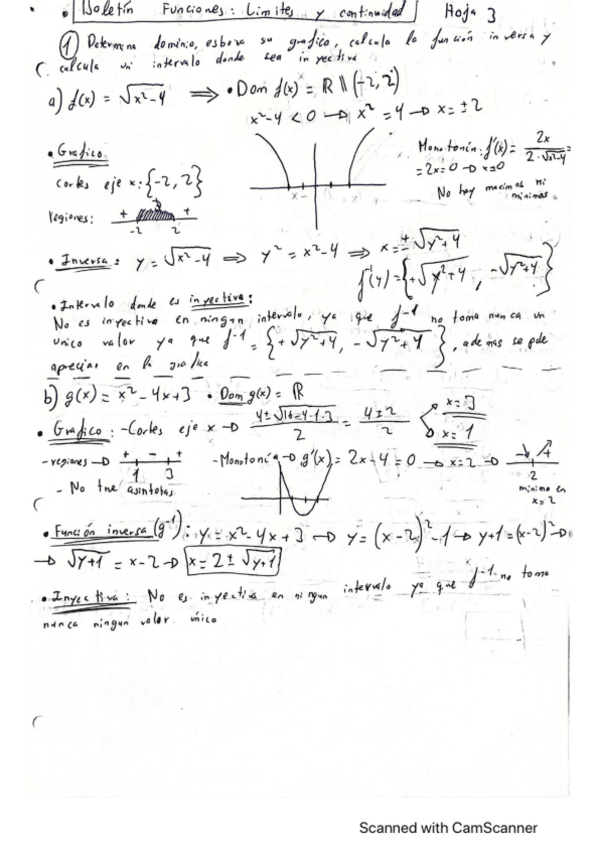 Boletín Funciones: Limites y continuidad Hoja 3
① Determina dominio, esboza su grafico, calcula la función inversa y
calcula un intervalo donde sea inyectiva
a) f(x) = √x²-4 ⟹ • Dom f(x) = ℝ \\ (-2, 2)
x²-4 < 0 → x² = 4 → x = ±2
• Grafico
cortes eje x: {-2, 2}
regiones: + - +
-2 2
Monotonía: f'(x) = 2x / 2·√x²-4 =
= 2x = 0 → x=0
No hay maximos ni
minimos
• Inversa: y = √x²-4 ⟹ y² = x²-4 ⟹ x = ±√y²+4
f⁻¹(y) = {+√y²+4, -√y²+4}
• Intervalo donde es inyectiva:
No es inyectiva en ningun intervalo, ya que f⁻¹ no toma nunca un
unico valor ya que f⁻¹ = {+√y²+4, -√y²+4}, ademas se pde
apreciar en la grafica
b) g(x) = x² - 4x + 3 • Dom g(x) = ℝ
• Grafico: - Cortes eje x → 4 ± √16-4·1·3 / 2 = 4 ± 2 / 2
x = 3
x = 1
- regiones → + - +
1 3
- Monotonía → g'(x) = 2x - 4 = 0 → x = 2 →
2
minimo en
x = 2
- No tne asintotas
• Función inversa (g⁻¹): y = x² - 4x + 3 → y = (x-2)² - 1 → y+1 = (x-2)² →
→ √y+1 = x-2 → x = 2 ± √y+1
• Inyectiva: No es inyectiva en ningun intervalo ya que f⁻¹ no toma
nunca ningun valor único
Scanned with CamScanner